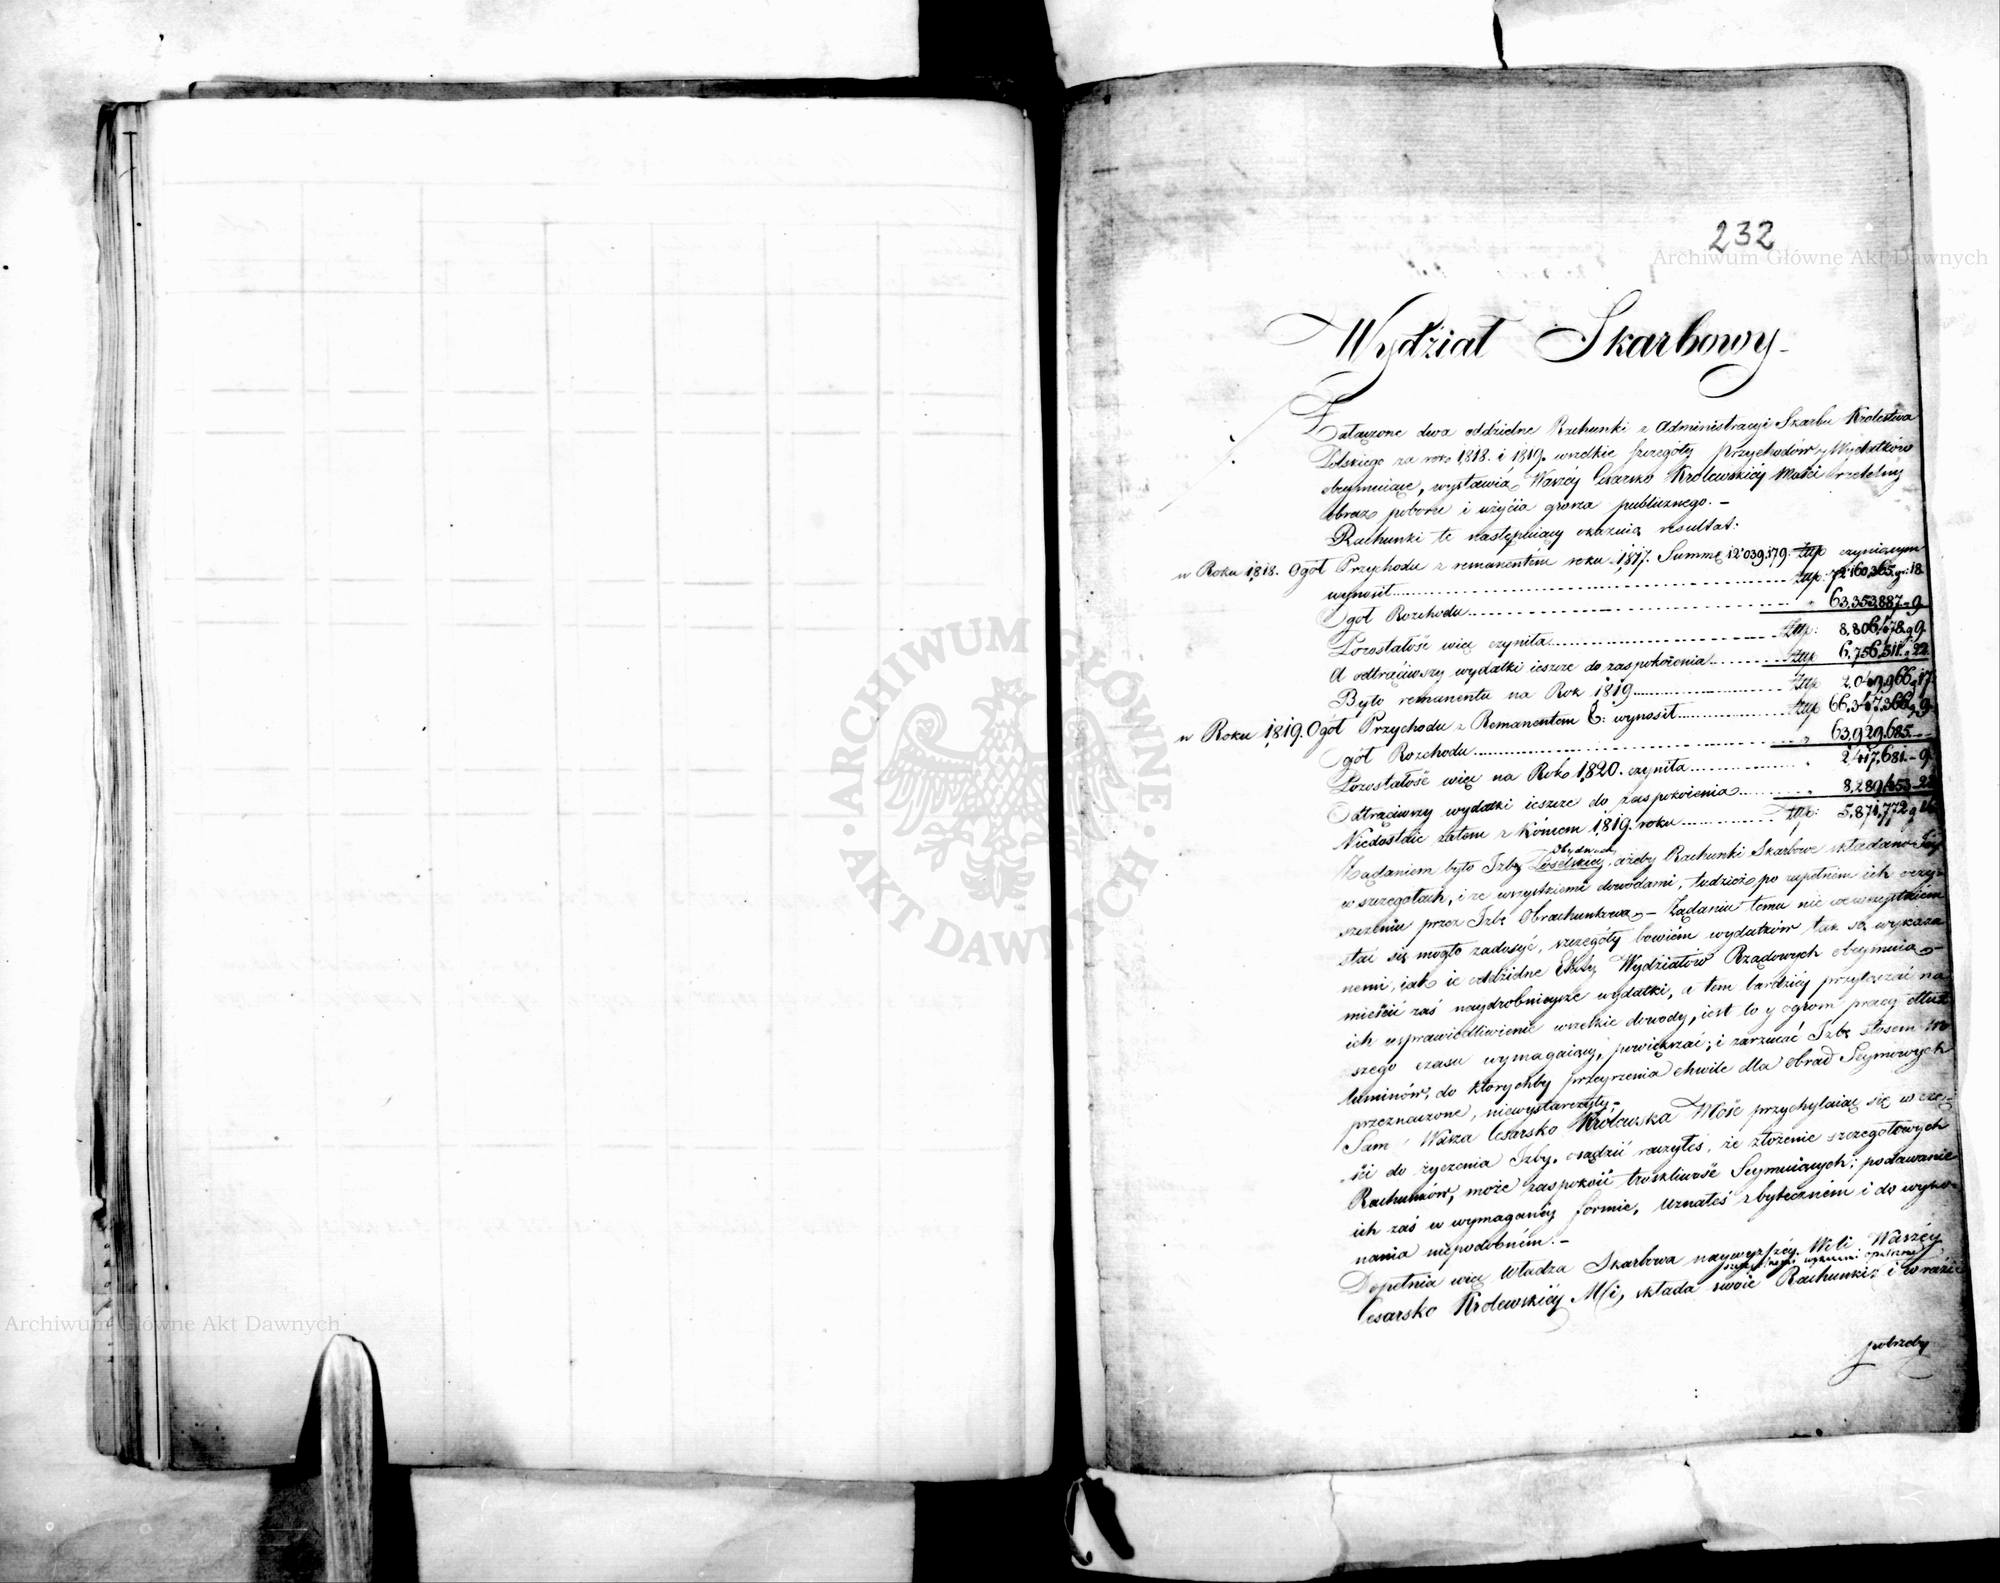 232
Archiwum Główne Akt Dawnych
Wydział Skarbowy.
Załączone dwa oddzielne Rachunki z Administracyi Skarbu Krolestwa
Polskiego za rok 1818. i 1819. wszelkie szczegóły Przychodów y Wydatków
obeymuiące, wystawią Waszéy Cesarsko Królewskiéy Mości rzetelny
obraz poboru i użycia grosza publicznego. –
Rachunki te następuiący okazuią resultat:
w Roku 1818. Ogół Przychodu z remanentem roku 1817. Summę 12'039,179 Złp czyniącym
wynosił Złp: 72'160,365. gr: 18.
Ogół Rozchodu " 63,353,887 " 9
Pozostałość więc czyniła Złp: 8,806,478 g 9.
A odtrąciwszy wydatki ieszcze do zaspokoienia Złp 6,756,511. " 22.
Było remanentu na Rok 1819 Złp 2,049,966 g 17.
w Roku 1819. Ogół Przychodu z Remanentem wynosił Złp 66,347,366 g 9.
Ogół Rozchodu " 63,929,685. –
Pozostałość więc na Rok 1820. czyniła " 2'417,681. – 9.
Odtrąciwszy wydatki ieszcze do zaspokoienia " 8,289,453 – 25
Niedostaie zatem z końcem 1819. roku Złp: 5.871,772 g 16
Obydwuch
Żądaniem było Izby Poselskiey, ażeby Rachunki Skarbowe składano Iey
w szczegółach, i ze wszystkiemi dowodami, tudzież po zupełnem ich oczy-
szczeniu przez Izbę Obrachunkową – Żądaniu temu nie we wszystkiém
stać się mogło zadosyć, szczegóły bowiém wydatków tak są wykaza-
nemi, iak ie oddzielne Etaty Wydziałów Rządowych obeymuią –
mieścić zaś naydrobnieysze wydatki, a tem bardziéy przyłączać na
ich usprawiedliwienie wszelkie dowody, iest to y ogrom pracy dłuż-
szego czasu wymagaiącéy, powiększać; i zarzucać Izbę stosem wo-
luminów, do którychby przeyrzenia chwile dla obrad Seymowych
przeznaczone, niewystarczyły. –
Sam Wasza Cesarsko Królewska Mość przychylaiąc się w czę-
ści do życzenia Izby, osądzić raczyłeś, że złożenie szczegółowych
Rachunków, może zaspokoić troskliwość Seymuiących; podawanie
ich zaś w wymaganéy formie, uznałeś zbyteczném i do wyko-
nania niepodobném. –
Dopełnia więc Władza Skarbowa naywyższéy Woli Waszéy
Cesarsko Królewskiéy Mści, składa swoie Rachunki; i w razie
potrzeby
ARCHIWUM GŁÓWNE AKT DAWNYCH
Archiwum Główne Akt Dawnych